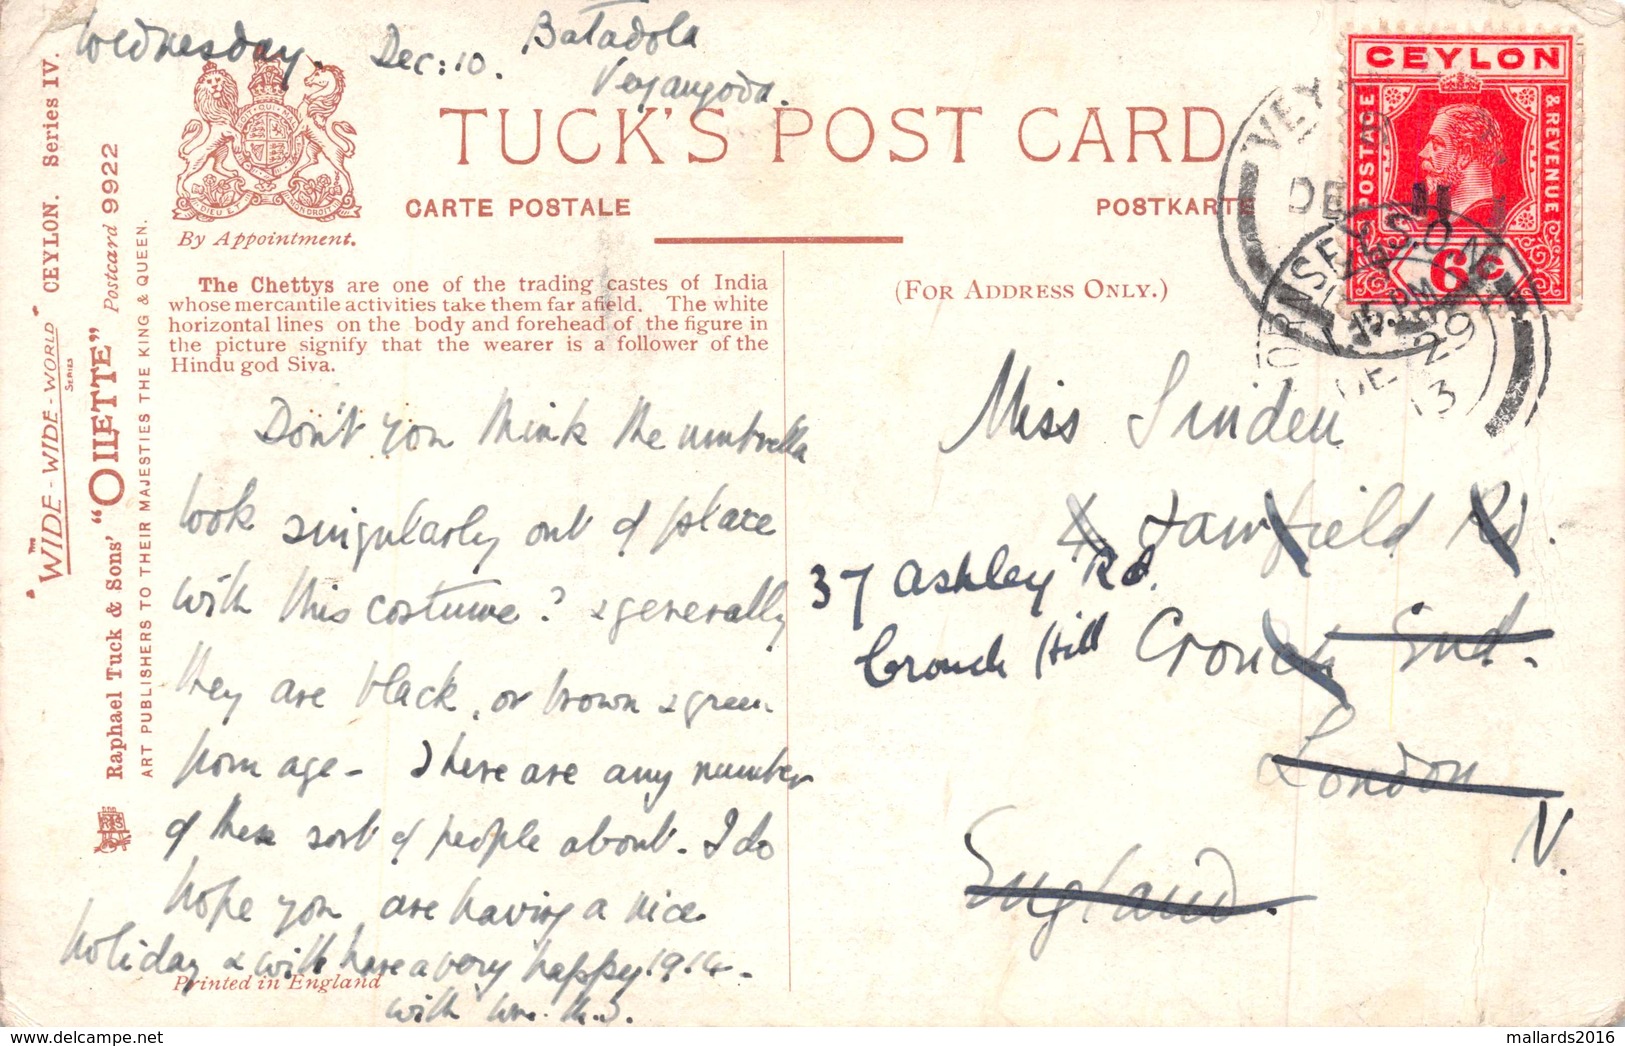 Wednesday. Dec: 10. Batadola
Veyangoda.
CEYLON
POSTAGE
& REVENUE
6 C
VEY
DE 11
HORNSEY S.O. N
PM
DE 29
13
TUCK'S POST CARD
CARTE POSTALE
POSTKARTE
By Appointment.
(FOR ADDRESS ONLY.)
The Chettys are one of the trading castes of India
whose mercantile activities take them far afield. The white
horizontal lines on the body and forehead of the figure in
the picture signify that the wearer is a follower of the
Hindu god Siva.
"THE WIDE-WIDE-WORLD" SERIES CEYLON. Series IV.
Raphael Tuck & Sons' "OILETTE" Postcard 9922
ART PUBLISHERS TO THEIR MAJESTIES THE KING & QUEEN.
Don't you think the umbrella
look singularly out of place
with this costume? & generally
they are black, or brown & green
from age - There are any number
of these sort of people about. I do
hope you are having a nice
holiday & will have a very happy 1914 -
with
Printed in England
Miss Linden
4 Fawfield Rd.
37 Ashley Rd.
Crouch Hill
Crouch End.
London
N.
England.
mallards2016